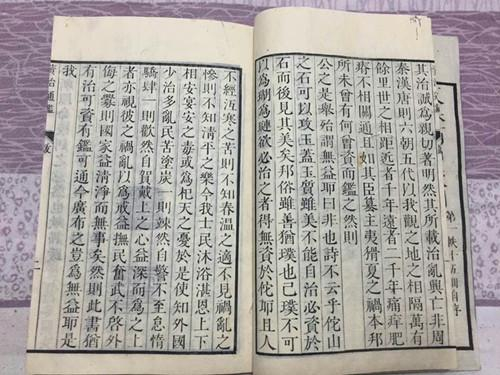 第一帙十五冊自
其治誠為親切著明然其所載治亂興亡非周
秦漢唐則六朝五代以我觀之地之相隔萬有
餘里世之相距近者千年遠者二千年痛痒肥
瘠不相關通且如其臣簒主夷猾夏之禍本邦
所未曾有何曾資而鑑之然則
公之是舉殆謂無益耶曰非也詩不云乎佗山
石之可以攻玉蓋玉質雖美不能自治必資於
石而後見其美矣邦俗雖善猶璞也已璞不可
以為瑚為璉欲必治之者得無資於佗耶且人
不經沍寒之苦則不知春溫之適不見禍亂之
慘則不知清平之樂今我士民沐浴湛恩上下
相安宴安之毒或為杞天之憂於是使知外國
少治多亂民苦塗炭一則竦然自警不至怠惰
驕肆一則歡然自賀戴上之心益深而為上之
者亦視彼之禍亂以為戒益撫民奮武不啓外
侮之釁則國家益清淨而無事矣然則此書猶
有治可資有鑑可通今廣布之豈為無益耶是
我
資治通鑑 序 二